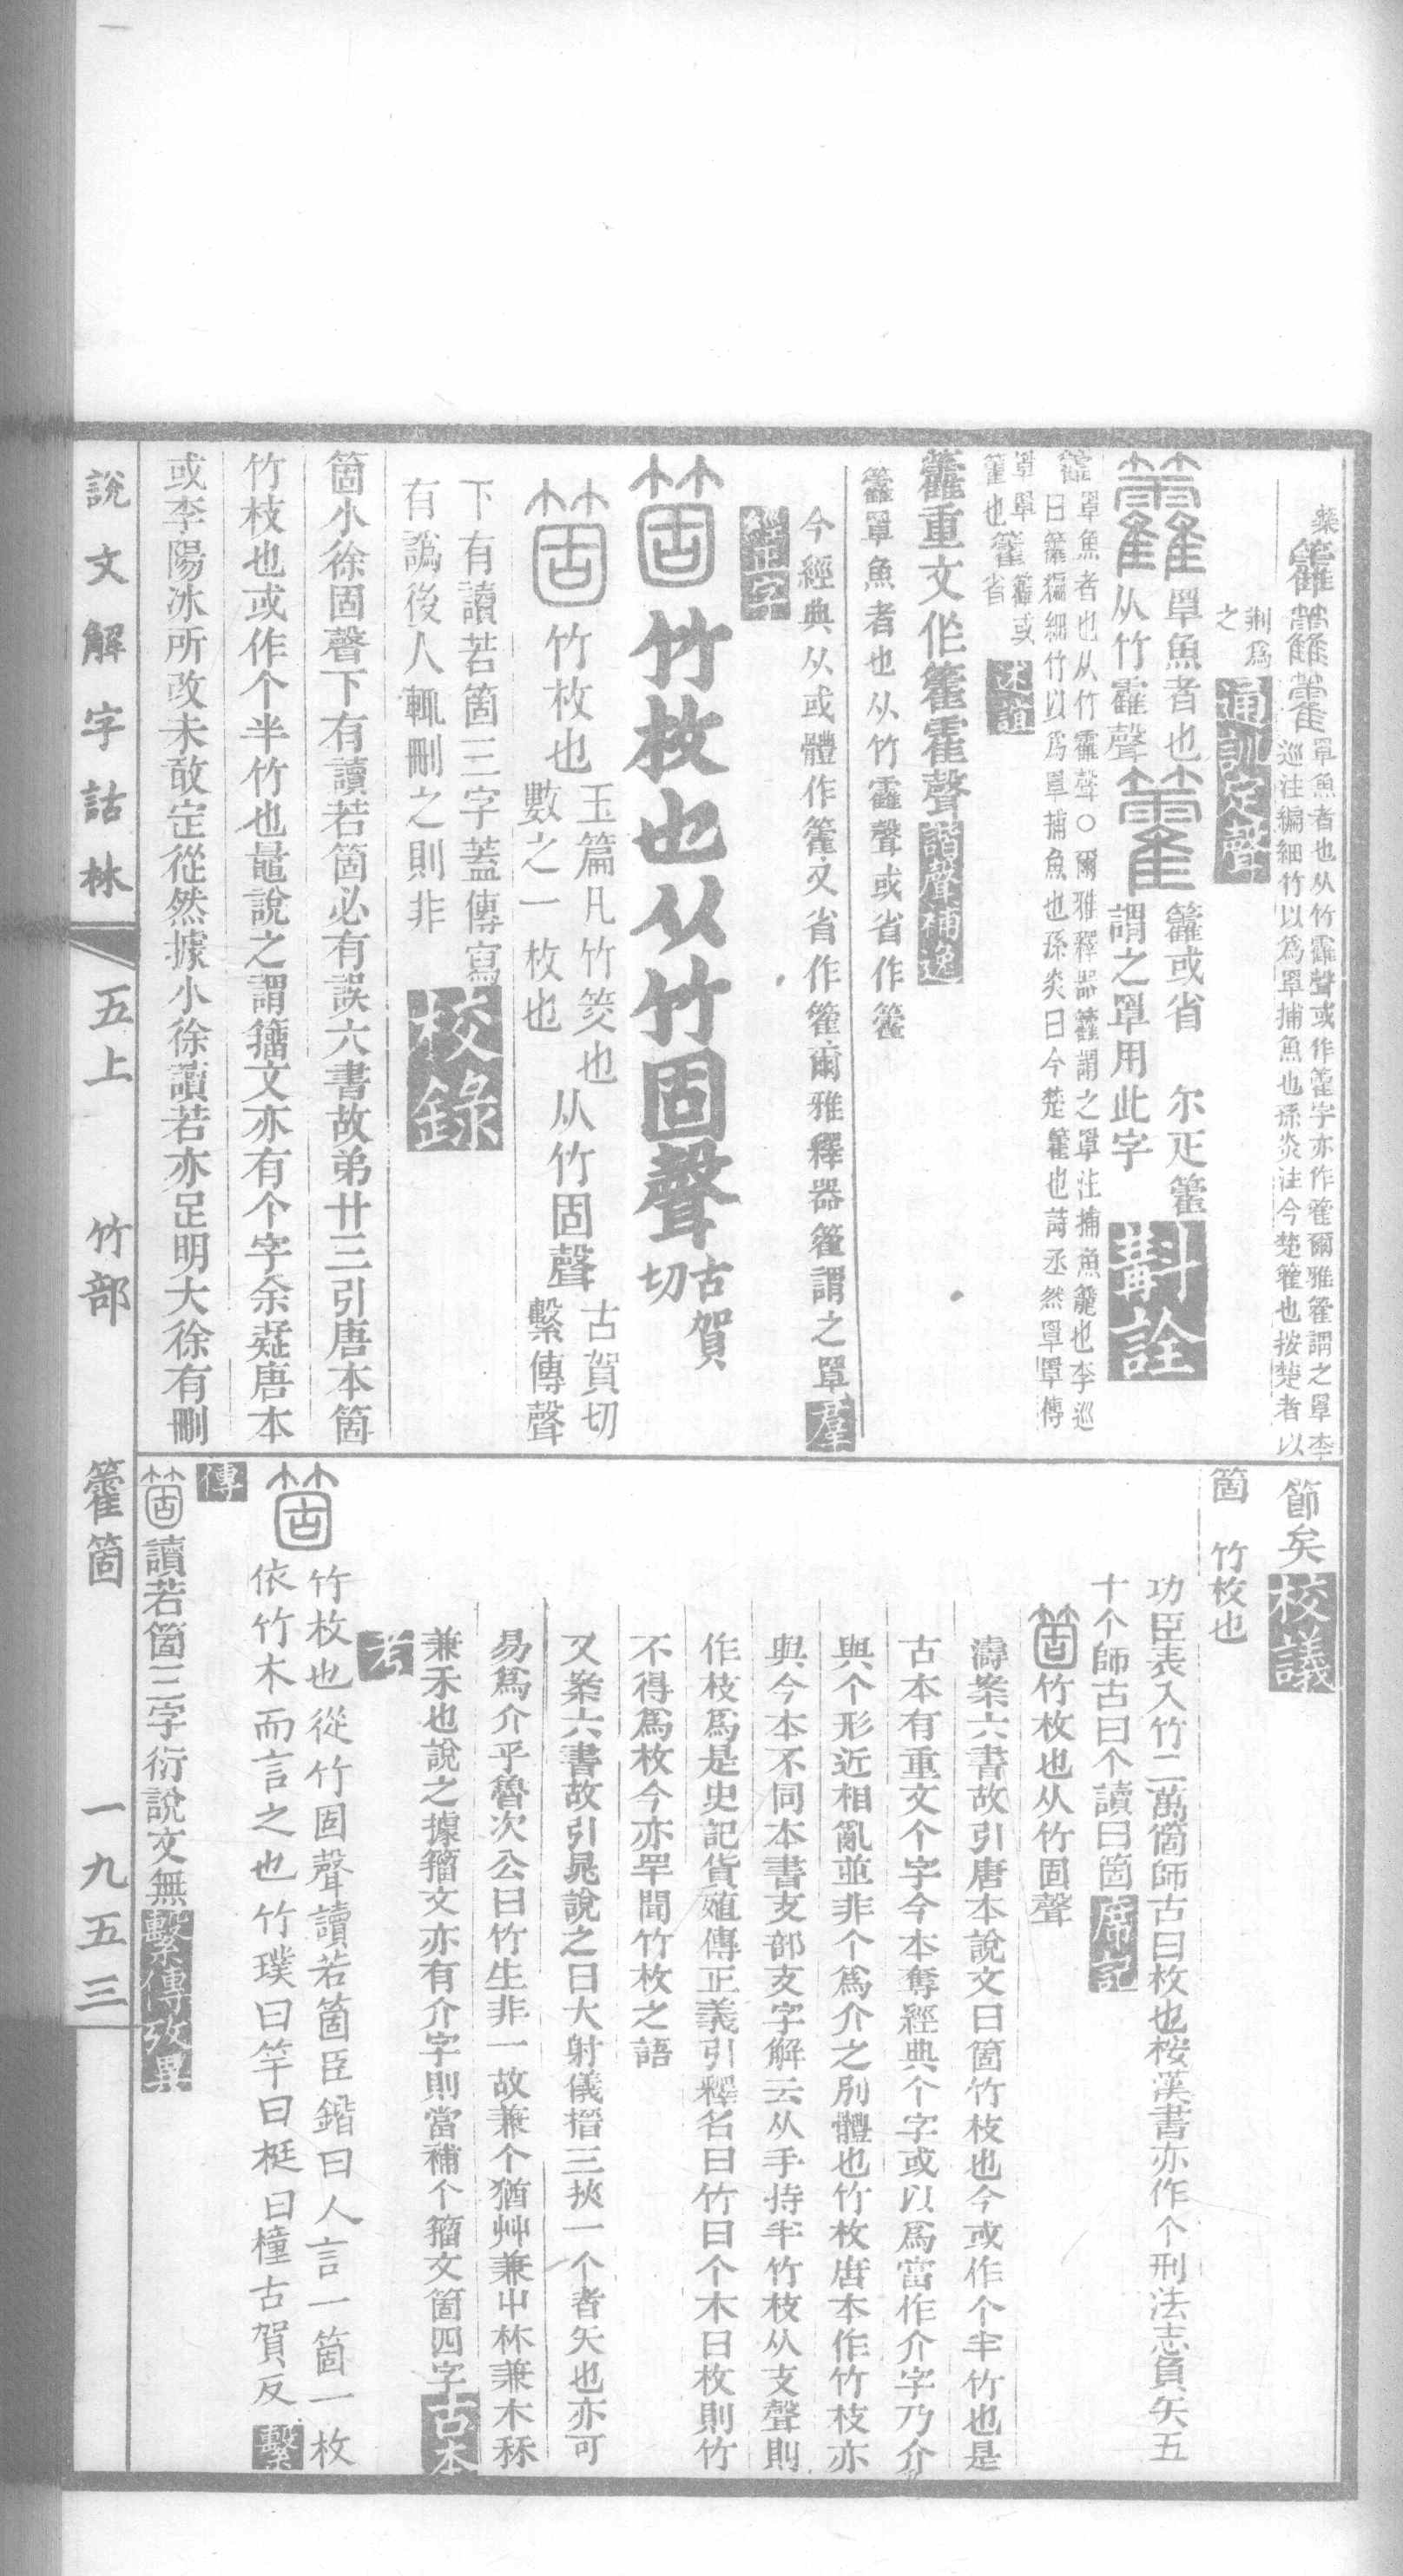 罩魚者也从竹靃聲或作籗字亦作篧爾雅篧謂之罩李
巡注編細竹以為罩捕魚也孫炎注今楚篧也按楚者以
荆爲
之
通訓定聲
罩魚者也
从竹靃聲
籗或省 尔疋籗
謂之罩用此字
斠詮
罩魚者也从竹靃聲○爾雅釋器籗謂之罩注捕魚籠也李巡
曰籗編細竹以爲罩捕魚也孫炎曰今楚籗也詩烝然罩罩傳
述誼
重文作籗霍聲
諧聲補逸
罩魚者也从竹靃聲或省作籗
今經典从或體作籗又省作篧爾雅釋器篧謂之罩
羣
經正字
箇
竹枚也从竹固聲
古賀
切
箇
竹枚也
玉篇凡竹筊也
數之一枚也
从竹固聲
古賀切
繫傳聲
下有讀若箇三字蓋傳寫
有譌後人輒刪之則非
校錄
箇小徐固聲下有讀若箇必有誤六書故弟廿三引唐本箇
竹枝也或作个半竹也鼂說之謂籒文亦有个字余疑唐本
或李陽冰所改未敢定從然據小徐讀若亦足明大徐有刪
節矣
校議
箇 竹枚也
功臣表入竹二萬箇師古曰枚也桉漢書亦作个刑法志負矢五
十个師古曰个讀曰箇
席記
箇
竹枚也从竹固聲
濤案六書故引唐本說文曰箇竹枝也今或作个半竹也是
古本有重文个字今本奪經典个字或以爲當作介字乃介
與个形近相亂並非个爲介之別體也竹枚唐本作竹枝亦
與今本不同本書支部支字解云从手持半竹枝从支聲則
作枝爲是史記貨殖傳正義引釋名曰竹曰个木曰枚則竹
不得爲枚今亦罕聞竹枚之語
又案六書故引晁說之曰大射儀搢三挾一个者矢也亦可
易爲介乎魯次公曰竹生非一故兼个猶艸兼屮林兼木秝
兼禾也說之據籒文亦有介字則當補个籒文箇四字
古本
考
箇
竹枚也從竹固聲讀若箇臣鍇曰人言一箇一枚
依竹木而言之也竹璞曰竿曰梃曰橦古賀反
繫
傳
箇
讀若箇三字衍說文無
繫傳攷異
說文解字詁林
五上
竹部
籗箇
一九五三